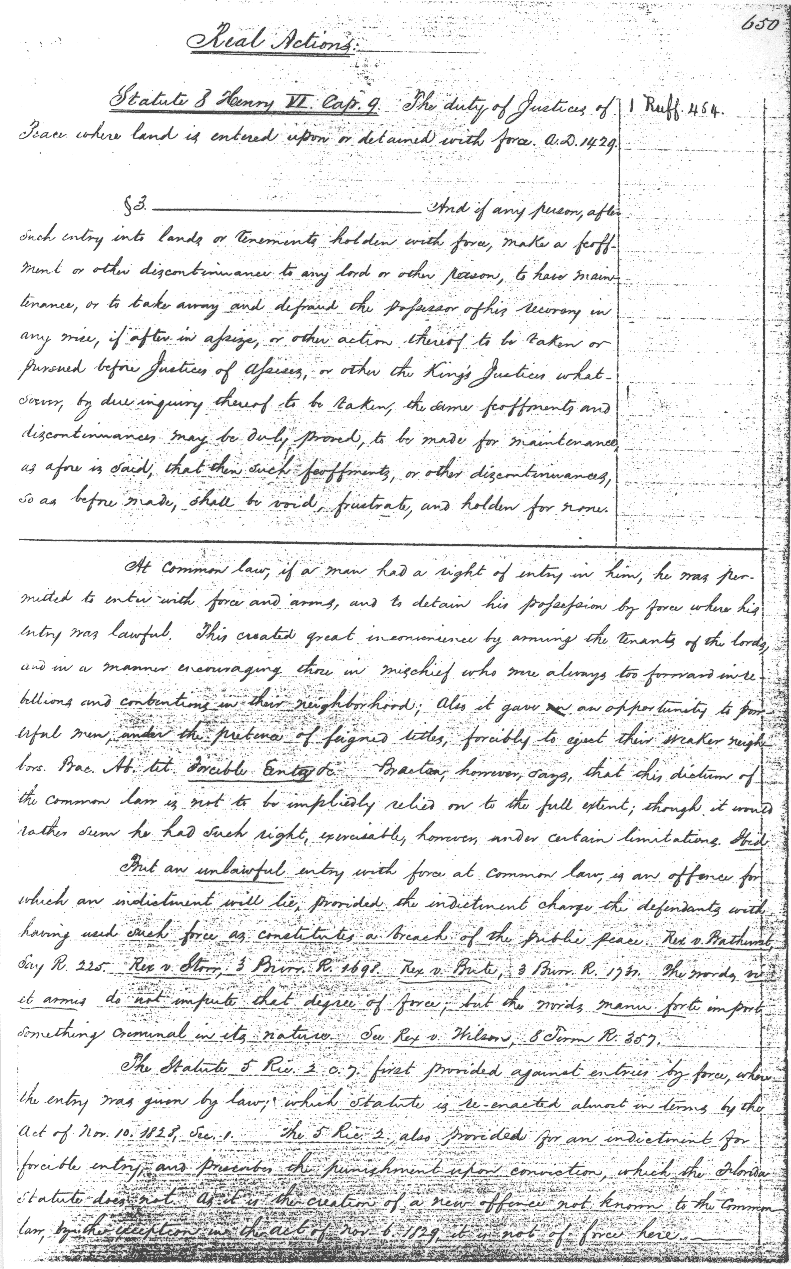 650
Real Actions:
Statute 8 Henry VI. Cap. 9. The duty of Justices of
1 Ruff. 454.
Peace where land is entered upon or detained with force. A.D. 1429.
§3. And if any person, after
such entry into lands or tenements holden with force, make a feoff-
ment or other discontinuance to any lord or other person, to have main-
tenance, or to take away and defraud the possessor of his recovery in
any wise, if after in assize, or other action thereof to be taken or
pursued before Justices of Assises, or other the King's Justices what-
soever, by due inquiry thereof to be taken, the same feoffments and
discontinuances may be duly proved, to be made for maintenance,
as afore is said, that then such feoffments, or other discontinuances,
so as before made, shall be void, frustrate, and holden for none.
At common law, if a man had a right of entry in him, he was per-
mitted to enter with force and arms, and to detain his possession by force where his
entry was lawful. This created great inconvenience by arming the tenants of the lords,
and in a manner encouraging those in mischief who were always too forward in re-
bellions and contentions in their neighborhood; Also it gave an opportunity to pow-
erful men, under the pretence of feigned titles, forcibly to eject their weaker neigh-
bors. Bac. Ab. tit. Forcible Entry &c. Bracton, however, says, that this dictum of
the common law is not to be impliedly relied on to the full extent; though it would
rather seem he had such right, exercisable, however, under certain limitations. Ibid.
But an unlawful entry with force at common law, is an offence for
which an indictment will lie, provided the indictment charge the defendants with
having used such force as constitutes a breach of the public peace. Rex v. Bathurst,
Say R. 225. Rex v. Storr, 3 Burr. R. 1698. Rex v. Bute, 3 Burr. R. 1731. The words vi
et armis do not impute that degree of force; but the words manu forte import
something criminal in its nature. See Rex v. Wilson, 8 Term R. 357.
The Statute 5 Ric. 2 c. 7. first provided against entries by force, where
the entry was given by law; which Statute is re-enacted almost in terms by the
Act of Nov. 10. 1828, Sec. 1. The 5 Ric. 2. also provided for an indictment for
forcible entry, and prescribes the punishment upon conviction, which the Florida
Statute does not. As it is the creation of a new offence not known to the Common
law, by the exception in the act of Nov. 6. 1829, it is not of force here.